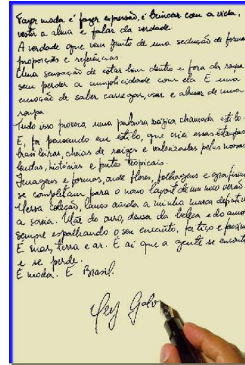 Fazer moda é fazer expressão, é brincar com a vida,
vestir a alma e falar da verdade.
A verdade que vem junto de uma sedução de formas,
proporções e referências
Uma sensação de estar bem dentro e fora da roupa
sem perder a cumplicidade com ela. É uma
emoção de saber carregar, usar e abusar de uma
roupa.
Tudo isso provoca uma pantera mágica chamada estilo
E, foi pensando em estilo, que criei essas estampas
brasileiras, cheias de raízes e valorizadas pelas nossas
lendas, histórias e frutos tropicais.
Imagens e formas, onde flores, folhagens e grafismos
se completam para o novo layout de um novo verão
Nessa coleção, lanço ainda a minha musa definitiva
a sereia. Mãe do ouro, deusa da beleza e do amor
sempre espalhando o seu encanto, feitiço e
É mar, terra e ar. É aí que a gente se encontra
e se perde.
É moda. É Brasil.